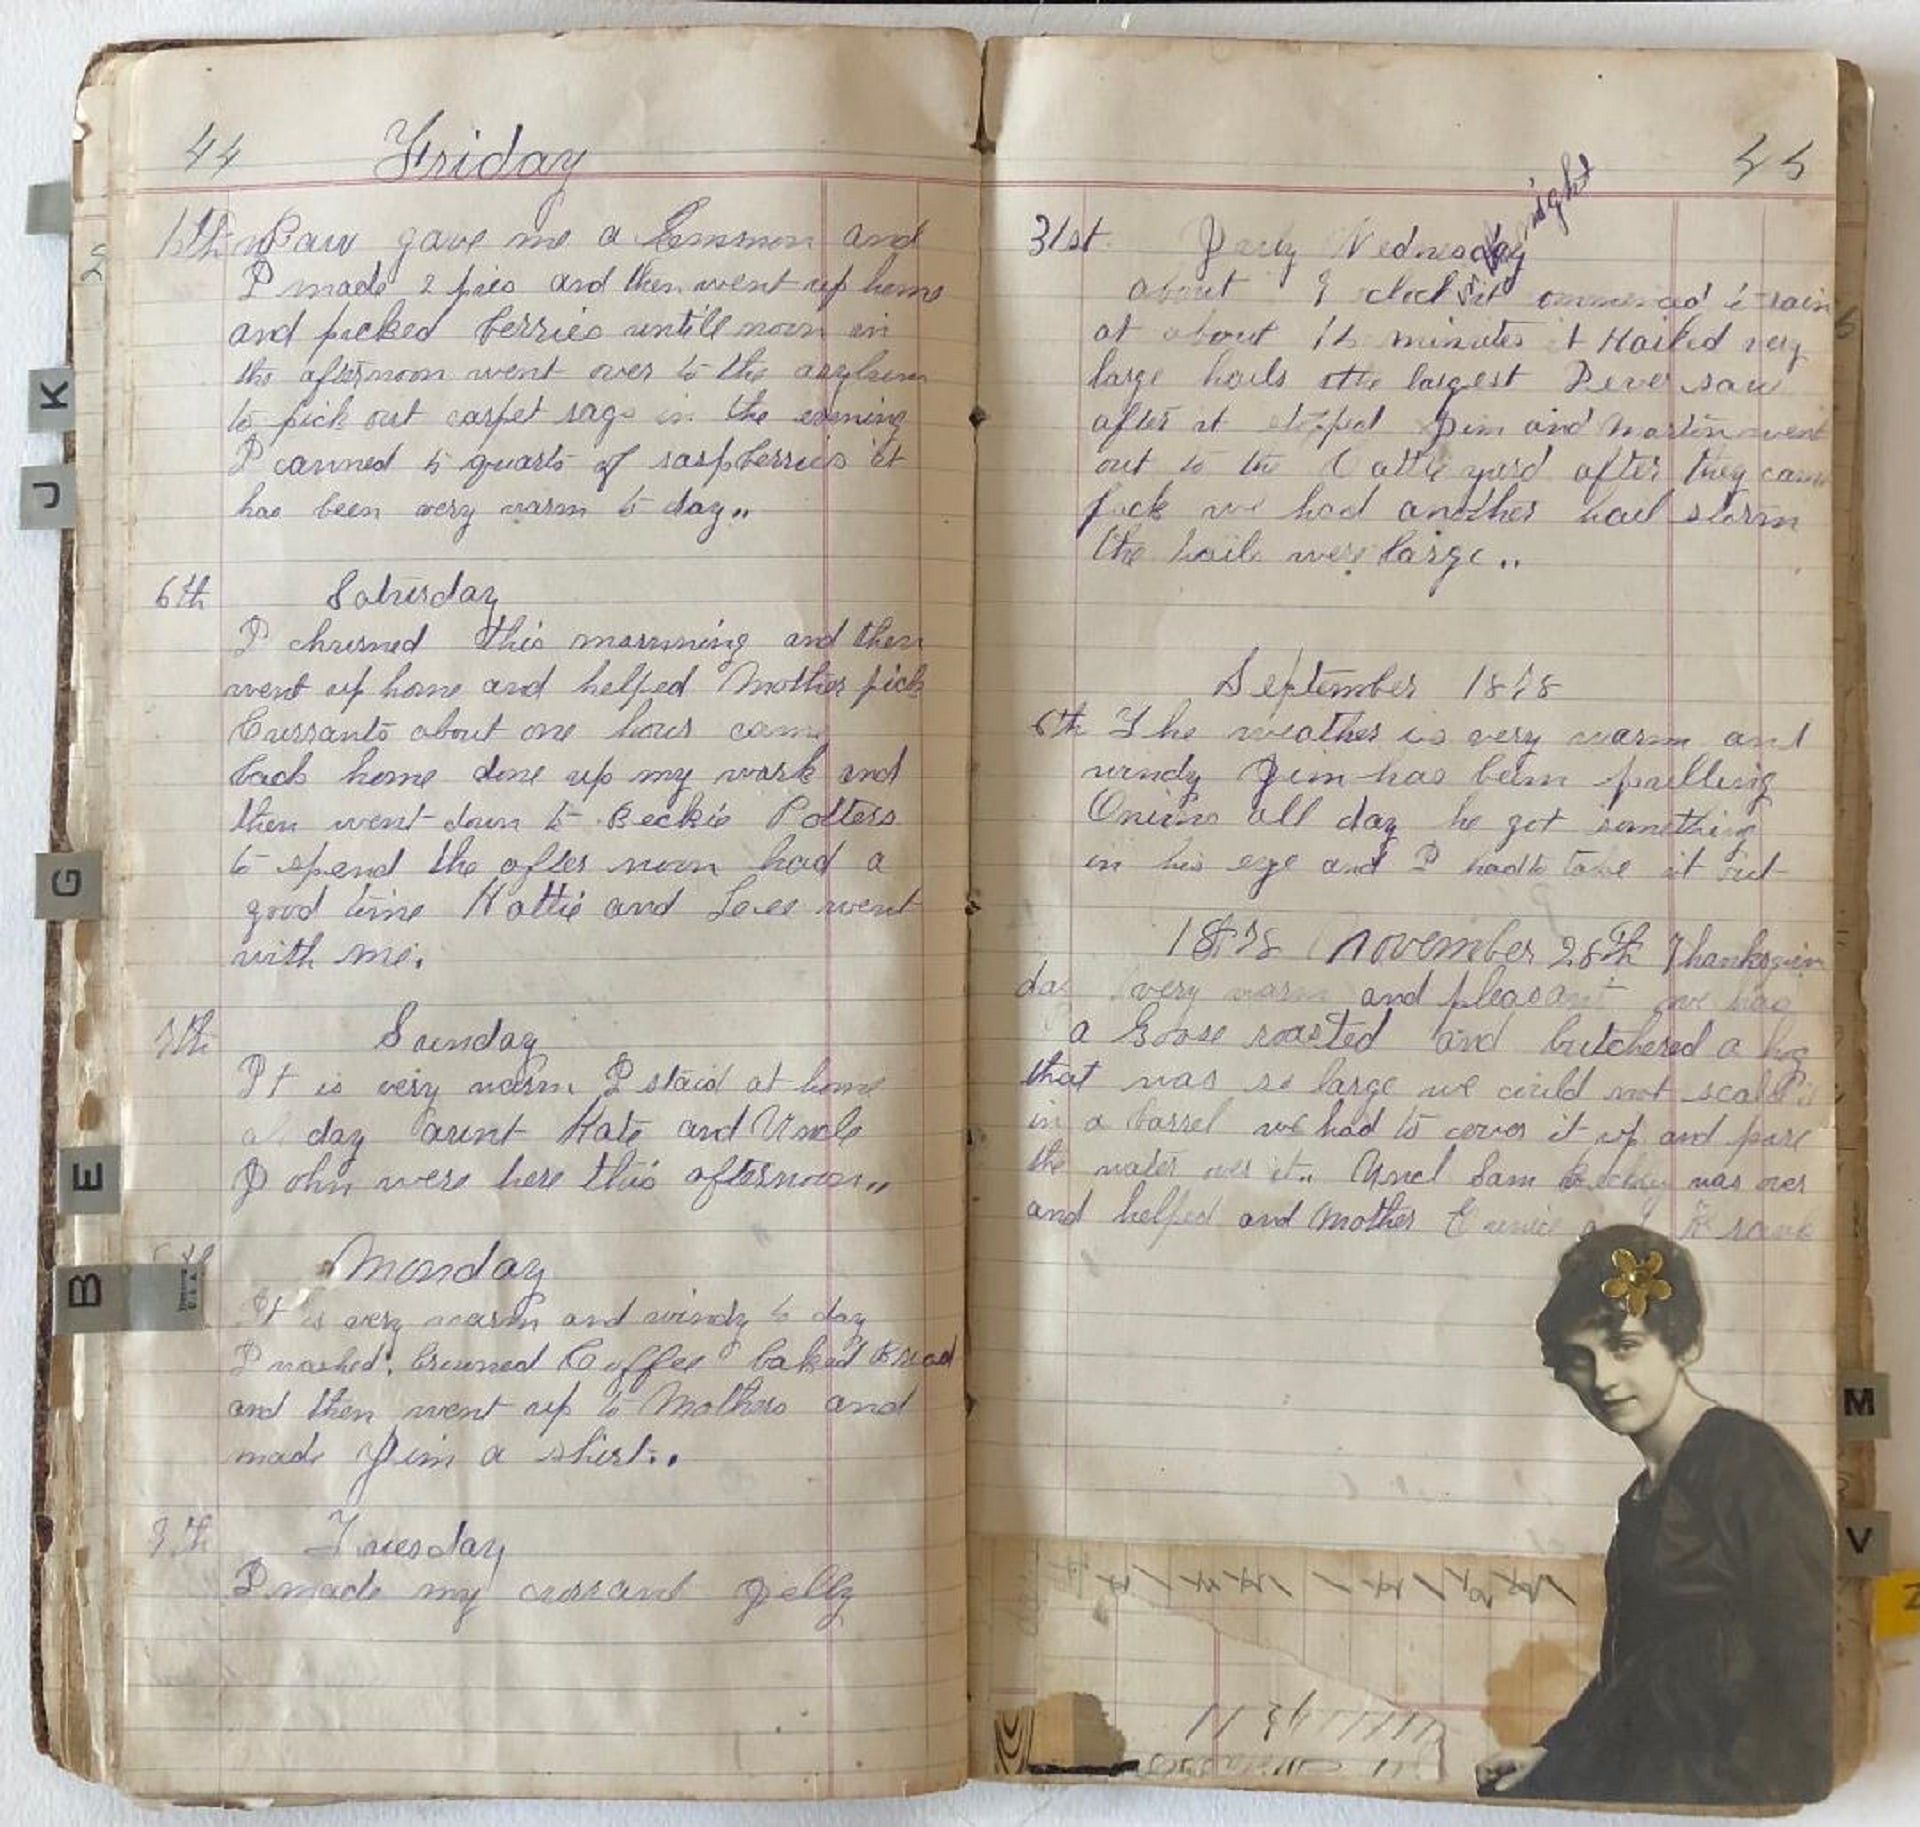 44 Friday
Paw gave me a Lemmon and
I made 2 pies and then went up home
and picked berries untill noon in
the afternoon went over to the asylum
to pick out carpet rags in the evening
I canned 5 quarts of raspberries it
has been very warm to day..
6th Saturday
I churned this morrning and then
went up home and helped Mother pick
Currants about one hour came
back home done up my work and
then went down to Beckie Potters
to spend the after noon had a
good time Hattie and went
with me.
7th Sunday
It is very warm I staid at home
day aunt Kate and Uncle
John were here this afternoon..
Monday
It is very warm and windy to day
I washed, browned Coffee baked Bread
and then went up to Mothers and
made Jim a shirt..
9th Tuesday
I made my currant Jelly
K
J
G
E
B
45
31st. Wednesday night
about clock it commenced to rain
at about 15 minutes it Hailed very
large hails the largest I ever saw
after it stopped Jim and Martin went
out to the Cattle yard after they came
back we had another hail storm
the hails were large..
September 1878
6th The weather is very warm and
windy Jim has been pulling
Onions all day he got something
in his eye and I had to take it out
1878 November 28th Thanksgivin
da very warm and pleasant we had
a Goose roasted and butchered a hog
that was so large we could not scald it
in a barrel we had to cover it up and pore
the water over it.. Uncl Sam was over
and helped and Mother
M
V
Z